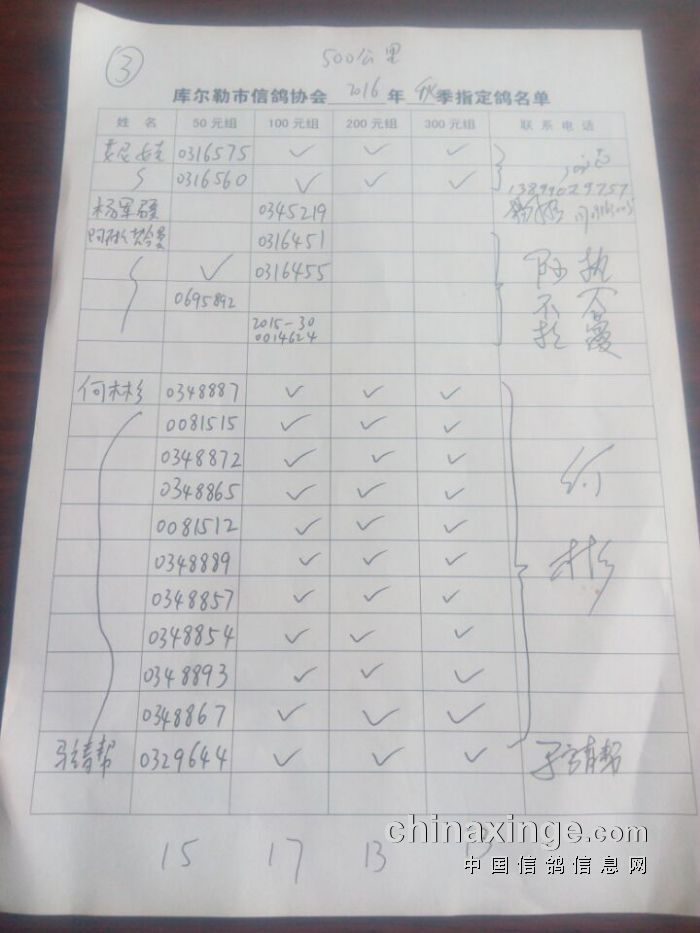 ③ 500公里
库尔勒市信鸽协会 2016 年 秋 季指定鸽名单
姓 名 50元组 100元组 200元组 300元组 联系电话
0316575 ✓ ✓ ✓
0316560 ✓ ✓ ✓ 13899029757
杨军 0345219
阿 0316451
✓ 0316455 阿
0695892 不
2015-30
0014624
何林彬 0348887 ✓ ✓ ✓
0081515 ✓ ✓ ✓
0348872 ✓ ✓ ✓
0348865 ✓ ✓ ✓ 何
0081512 ✓ ✓ ✓
0348889 ✓ ✓ ✓ 彬
0348857 ✓ ✓ ✓
0348854 ✓ ✓ ✓
0348893 ✓ ✓ ✓
0348867 ✓ ✓ ✓
帮 0329644 ✓ ✓ ✓ 帮
15 17 13 13
chinaxinge.com
中国信鸽信息网